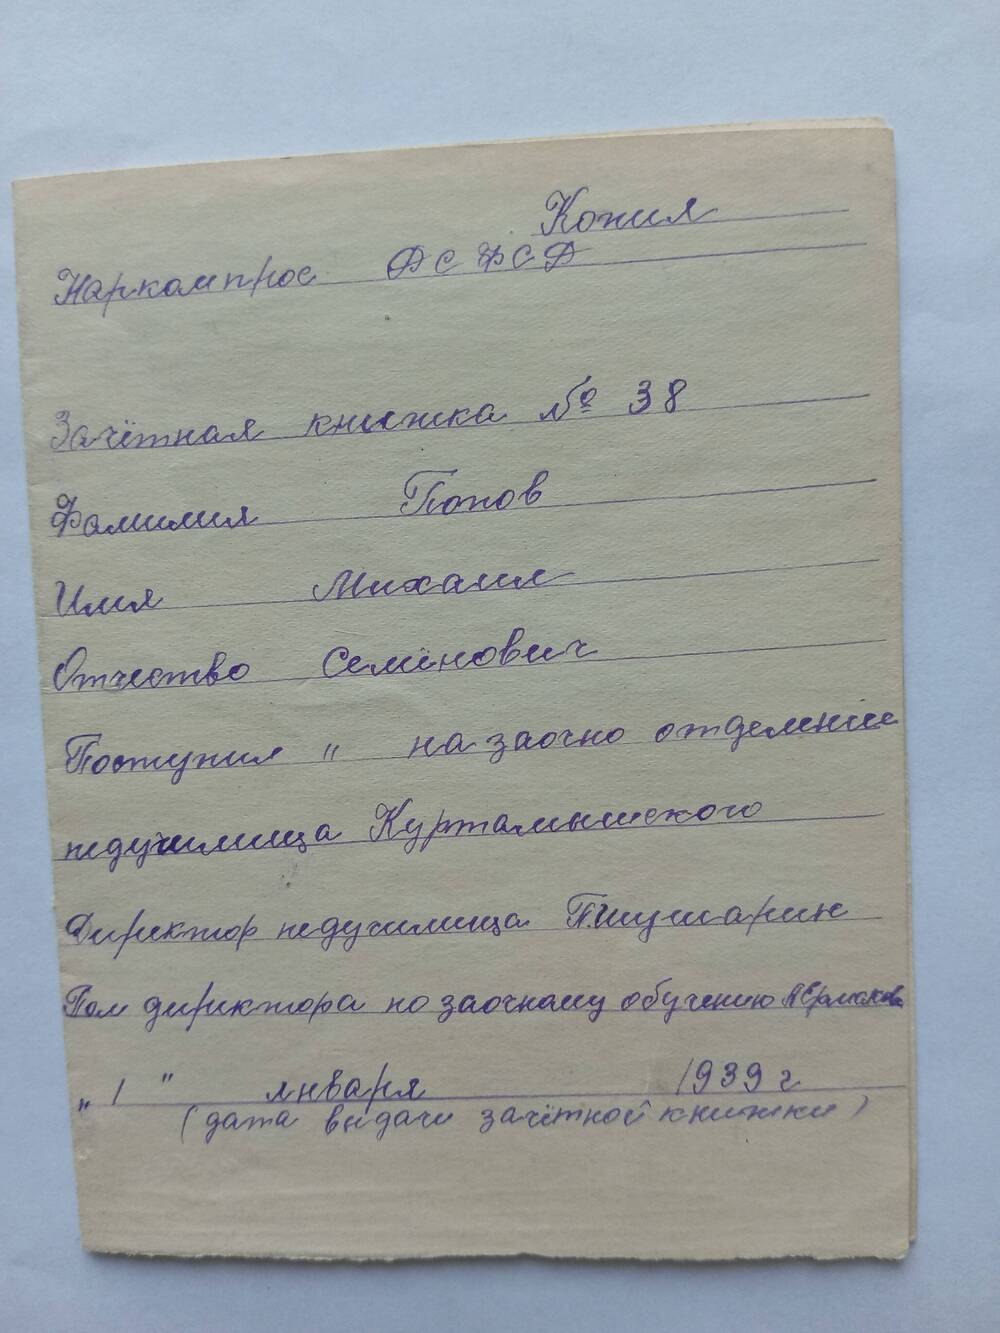 Копия
Наркомпрос РСФСР
Зачётная книжка № 38
Фамилия Попов
Имя Михаил
Отчество Семёнович
Поступил " на заочно отделение
педучилища Куртамышского
Директор педучилища П.Шушарин
Пом директора по заочному обучению А Ермакова
„ 1 " января 1939 г
(дата выдачи зачётной книжки)